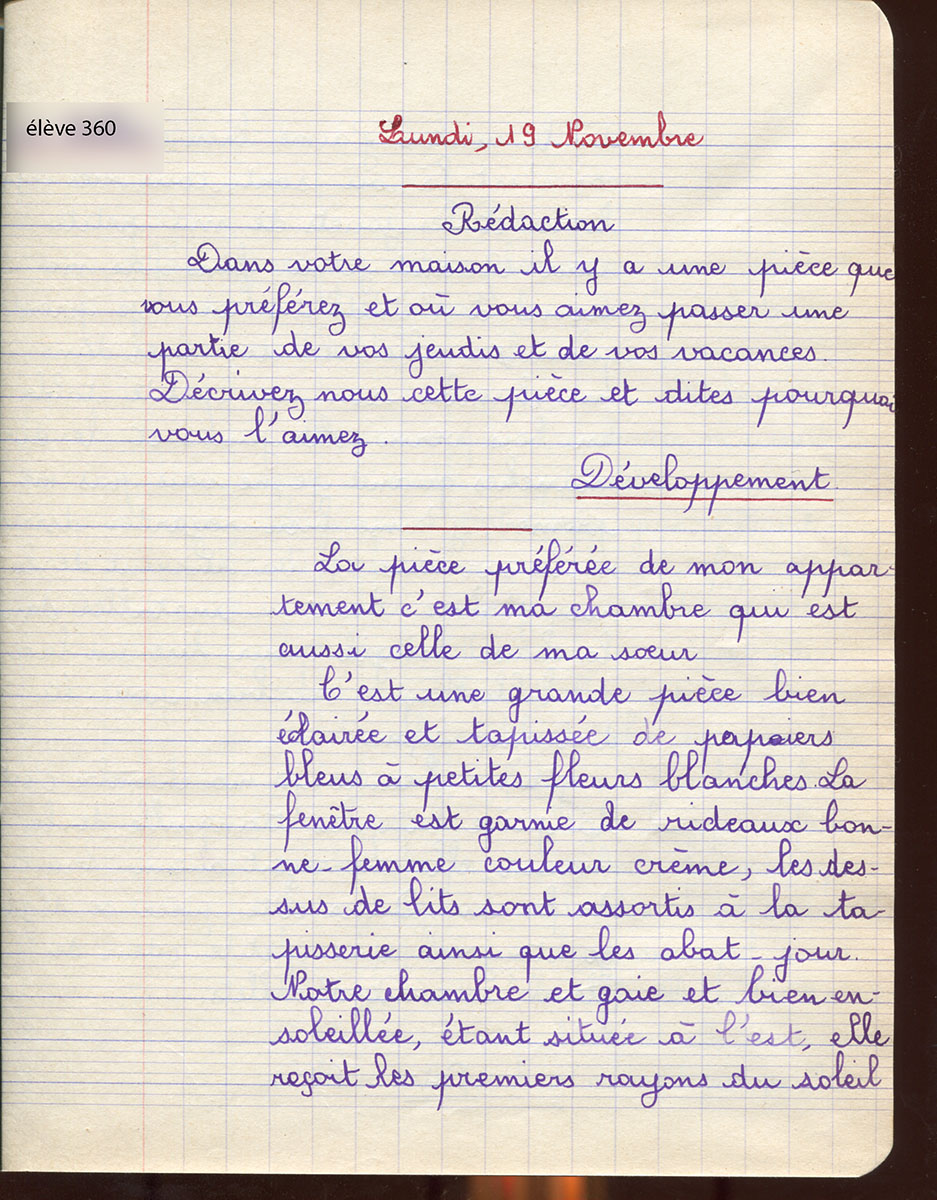 élève 360
Lundi, 19 Novembre
Rédaction
Dans votre maison il y a une pièce que
vous préférez et où vous aimez passer une
partie de vos jeudis et de vos vacances.
Décrivez nous cette pièce et dites pourquoi
vous l'aimez.
Développement
La pièce préférée de mon appar-
tement c'est ma chambre qui est
aussi celle de ma sœur
C'est une grande pièce bien
éclairée et tapissée de papiers
bleus à petites fleurs blanches. La
fenêtre est garnie de rideaux bon-
ne-femme couleur crème, les des-
sus de lits sont assortis à la ta-
pisserie ainsi que les abat-jour.
Notre chambre et gaie et bien en-
soleillée, étant située à l'est, elle
reçoit les premiers rayons du soleil